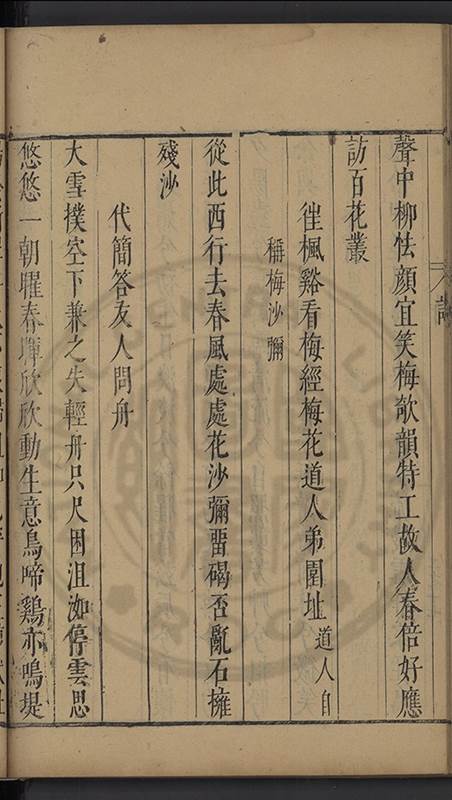 聲中柳怯顔宜笑梅欹韻特工故人春倍好應
訪百花叢
徃楓谿看梅經梅花道人弟圍址道人自
稱梅沙彌
從此西行去春風處處花沙彌畱碣否亂石擁
殘沙
代簡答友人問舟
大雪撲空下兼之失輕舟只尺困沮洳停雲思
悠悠一朝曜春暉欣欣動生意鳥啼鷄亦鳴堤